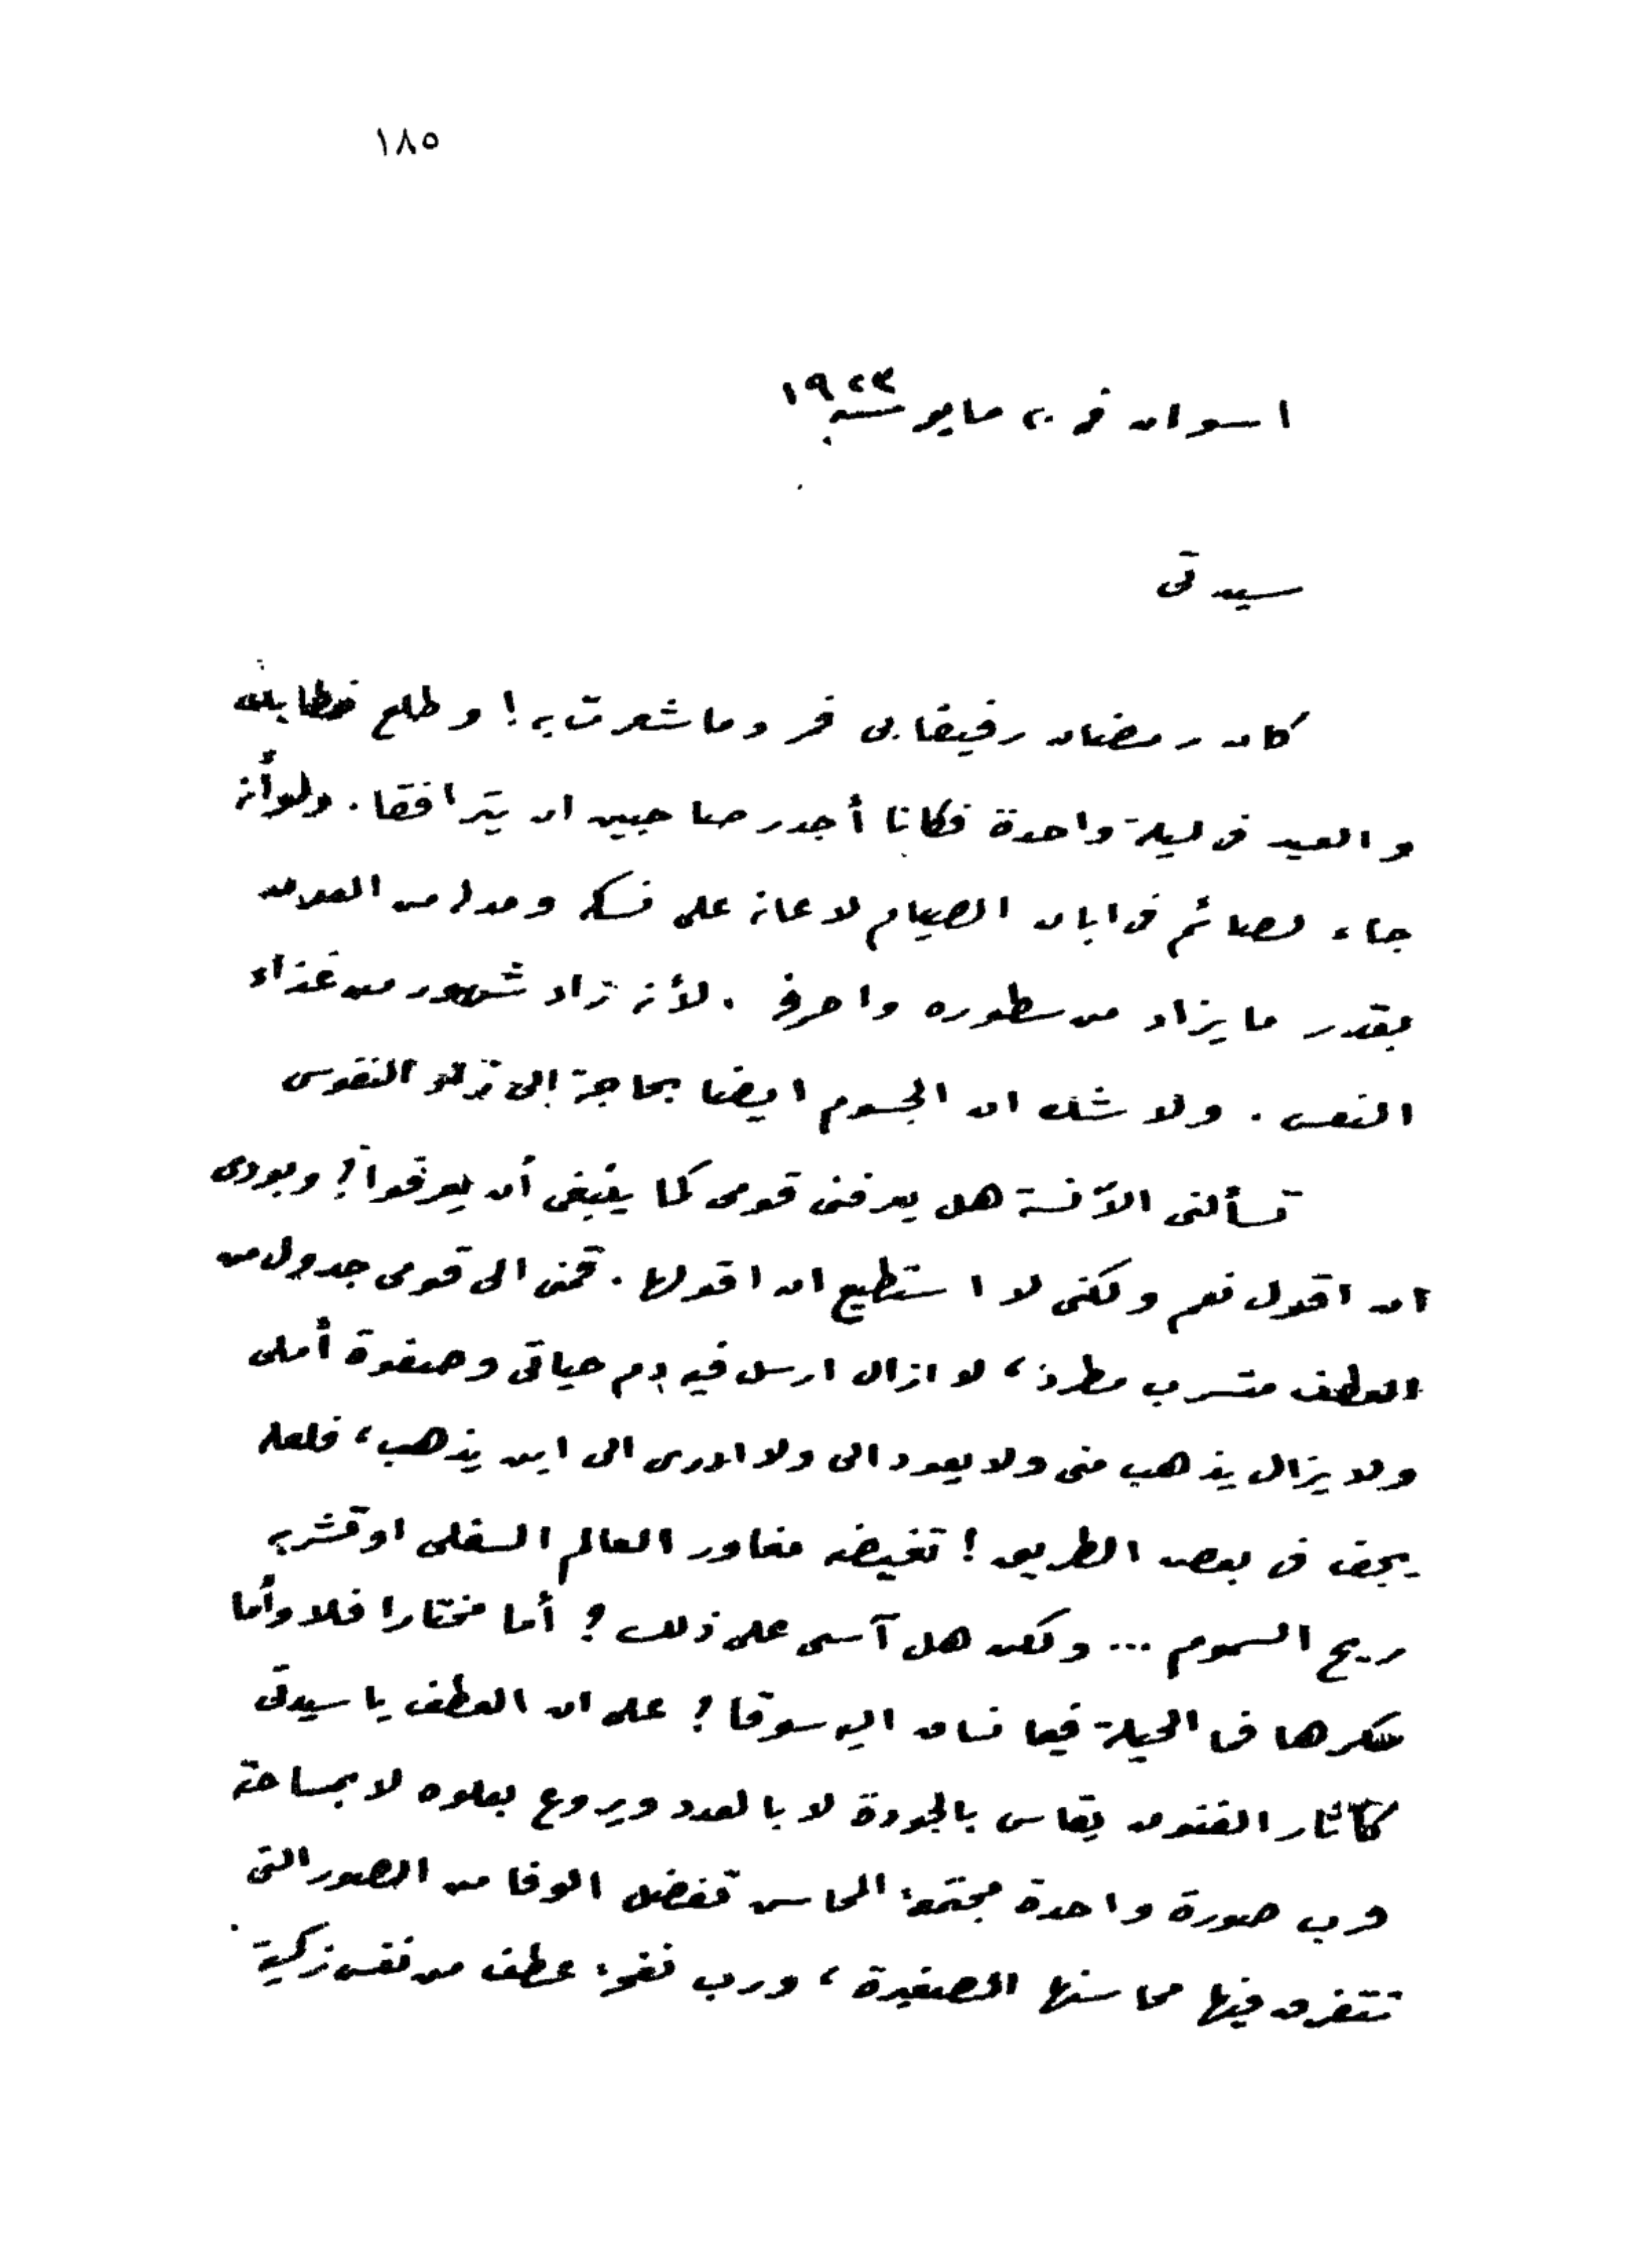 ١٨٥
اسوان في ٢٠ مايو سنة ١٩٢٣
سيدتى
كان رمضان رفيقا بى فمر وما شعرت به ! وطلع خطابك
والعيد فى ليلة واحدة فكانا أجدر صاحبين ان يترافقا . ولو أنه
جاء لصائم فى ابان الصيام لاعانه على نسكه ومد له من العون
بقدر ما يزاد من سطوره واحرفه . لأنه زاد شهور من غذاء
النفس . ولا شك ان الجسوم ايضا بحاجة إلى زاد النفوس
تسألنى الآنسة هل يعرفنى قومى كما ينبغى أن يعرفوا ؟ وبودى
ان اقول نعم ولكنى لا استطيع ان اقولها . فمنى الى قومى جدول من
العطف متسرب مطرد ، لا ازال ارسل فيه دم حياتى وصفوة أملى
ولا يزال يذهب منى ولا يعود الى ولا ادرى الى اين يذهب ، فلعله
يجف فى بعض الطريق ! تغيضه مغاور العالم السفلى او تشربه
ريح السموم ... ولكن هل آسى على ذلك ؟ أما مختارا فلا وأما
مكرها فما الحيلة فيما نساق اليه سوقا ؟ على ان العطف يا سيدتى
كآثار الفنون يقاس بالجودة لا بالعدد ويروع بعلوه لا بمساحته
فرب صورة واحدة مجتمعة المحاسن تفضل الوفا من الصور التى
تتفرق فيها محاسنها الصغيرة ، ورب نفحة عطف من نفس زكية